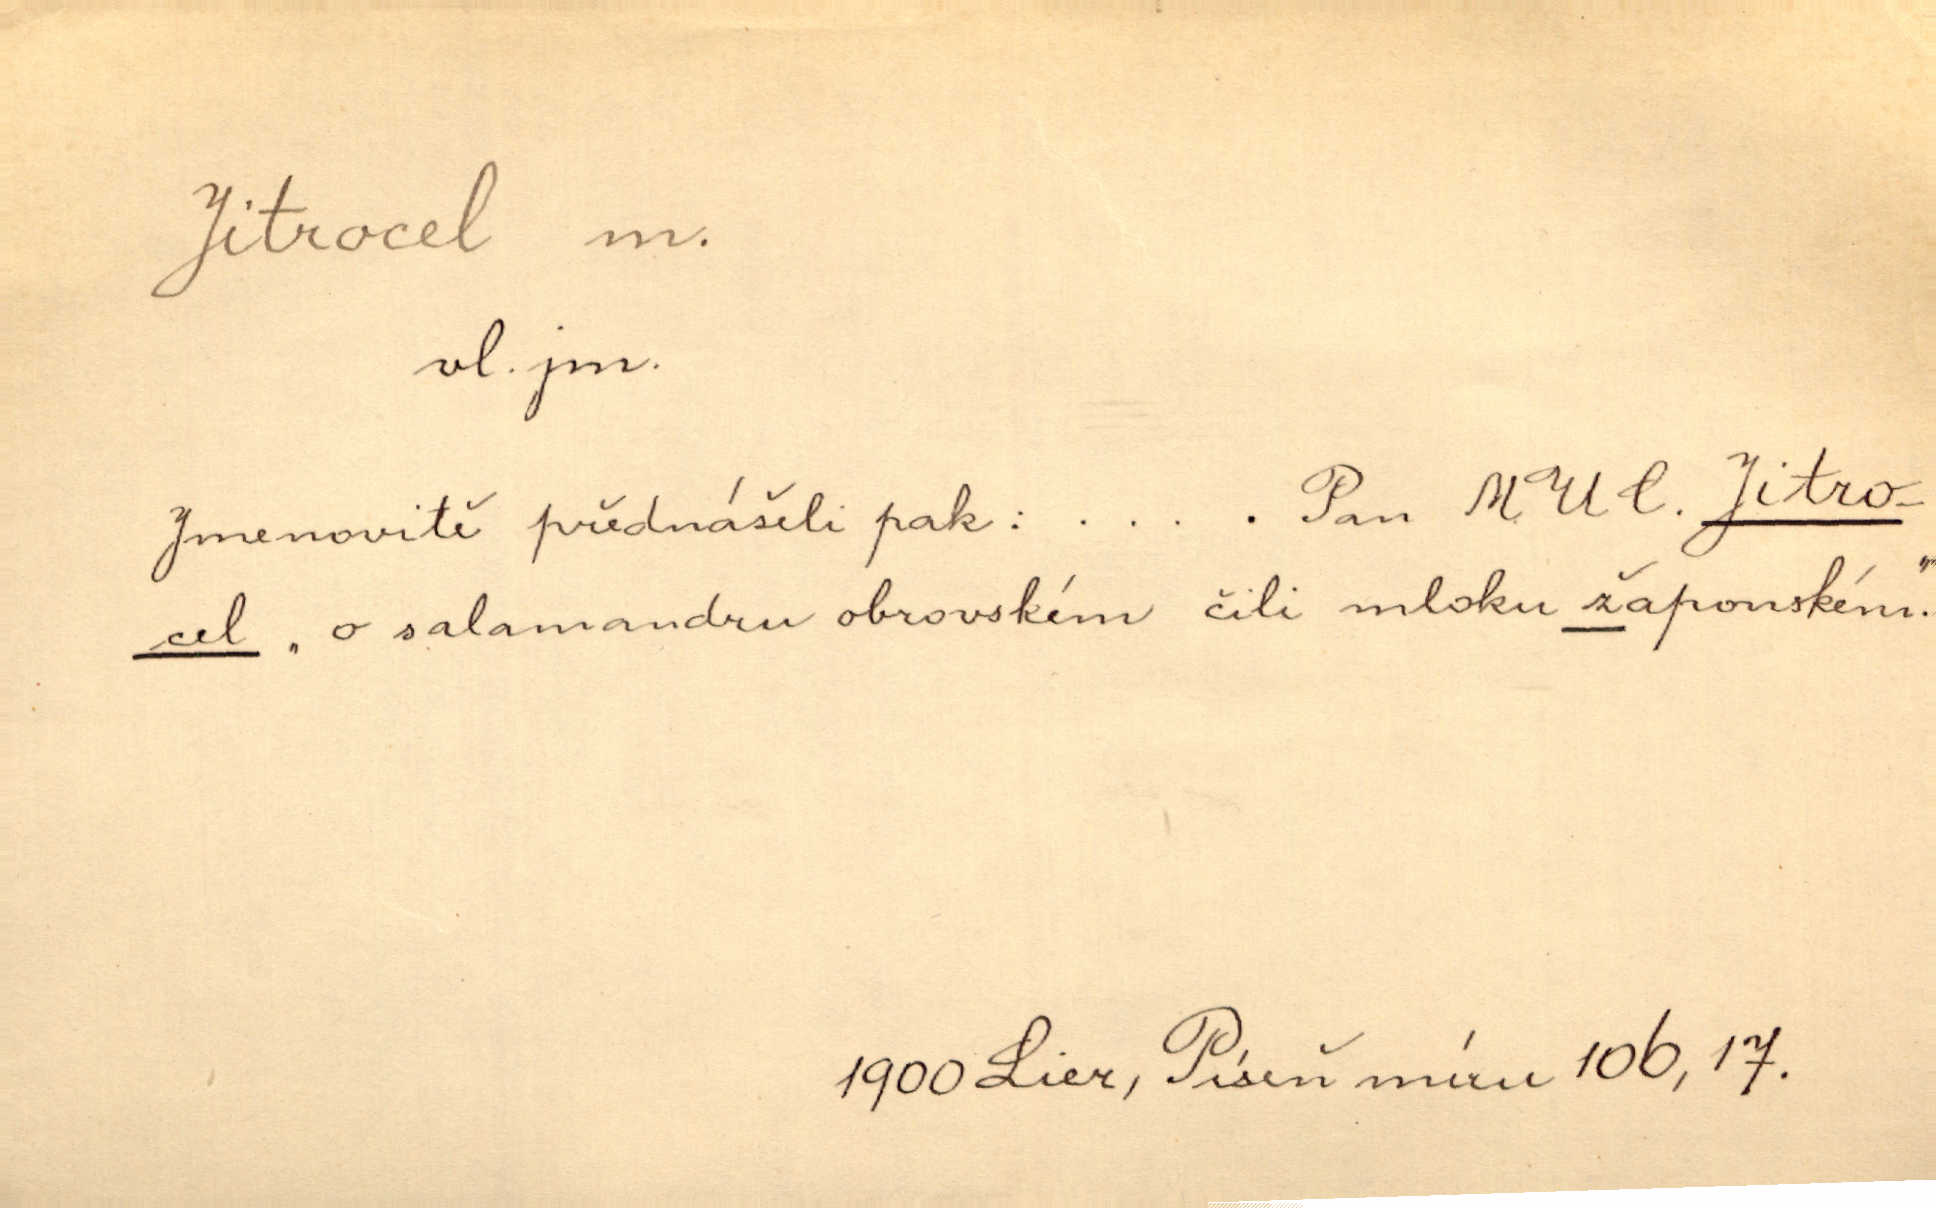 Jitrocel m.
vl. jm.
Jmenovitě přednášeli pak: . . . . Pan MUC. Jitro-
cel „o salamandru obrovském čili mloku žaponském.“
1900 Lier, Píseň míru 106, 17.